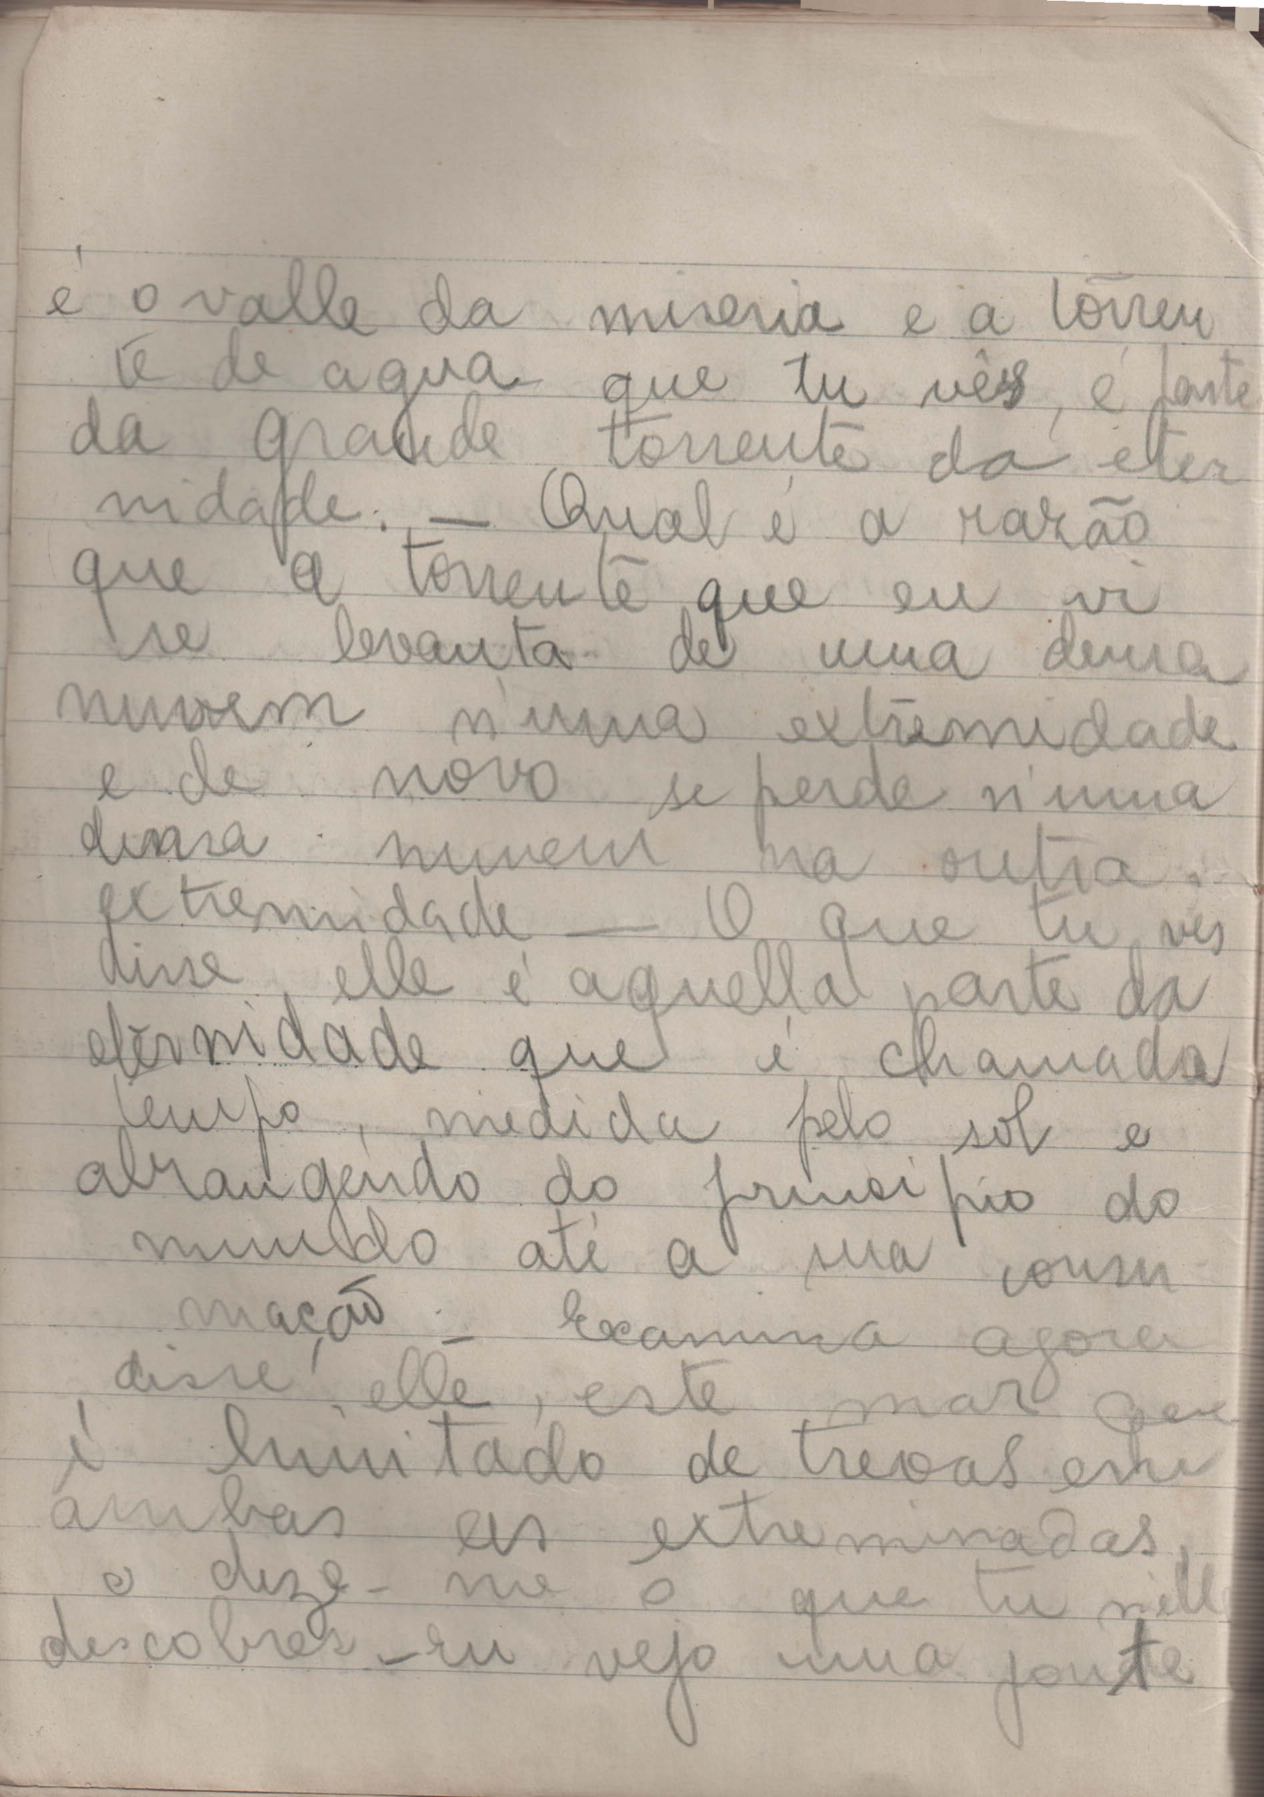 é o valle da miseria e a torren
te de agua que tu vês, é parte
da grande torrente da eter
nidade. — Qual é a razão
que a torrente que eu vi
se levanta de uma densa
nuvem n'uma extremidade
e de novo se perde n'uma
densa nuvem na outra
extremidade — O que tu vês
disse, elle é aquella parte da
eternidade que é chamada
tempo, medida pelo sol e
abrangendo do principio do
mundo até a sua consu
mação. — Examina agora
disse elle, este mar que
é limitado de trevas em
ambas as extreminadas,
e dize-me o que tu nelle
descobres - Eu vejo uma ponte